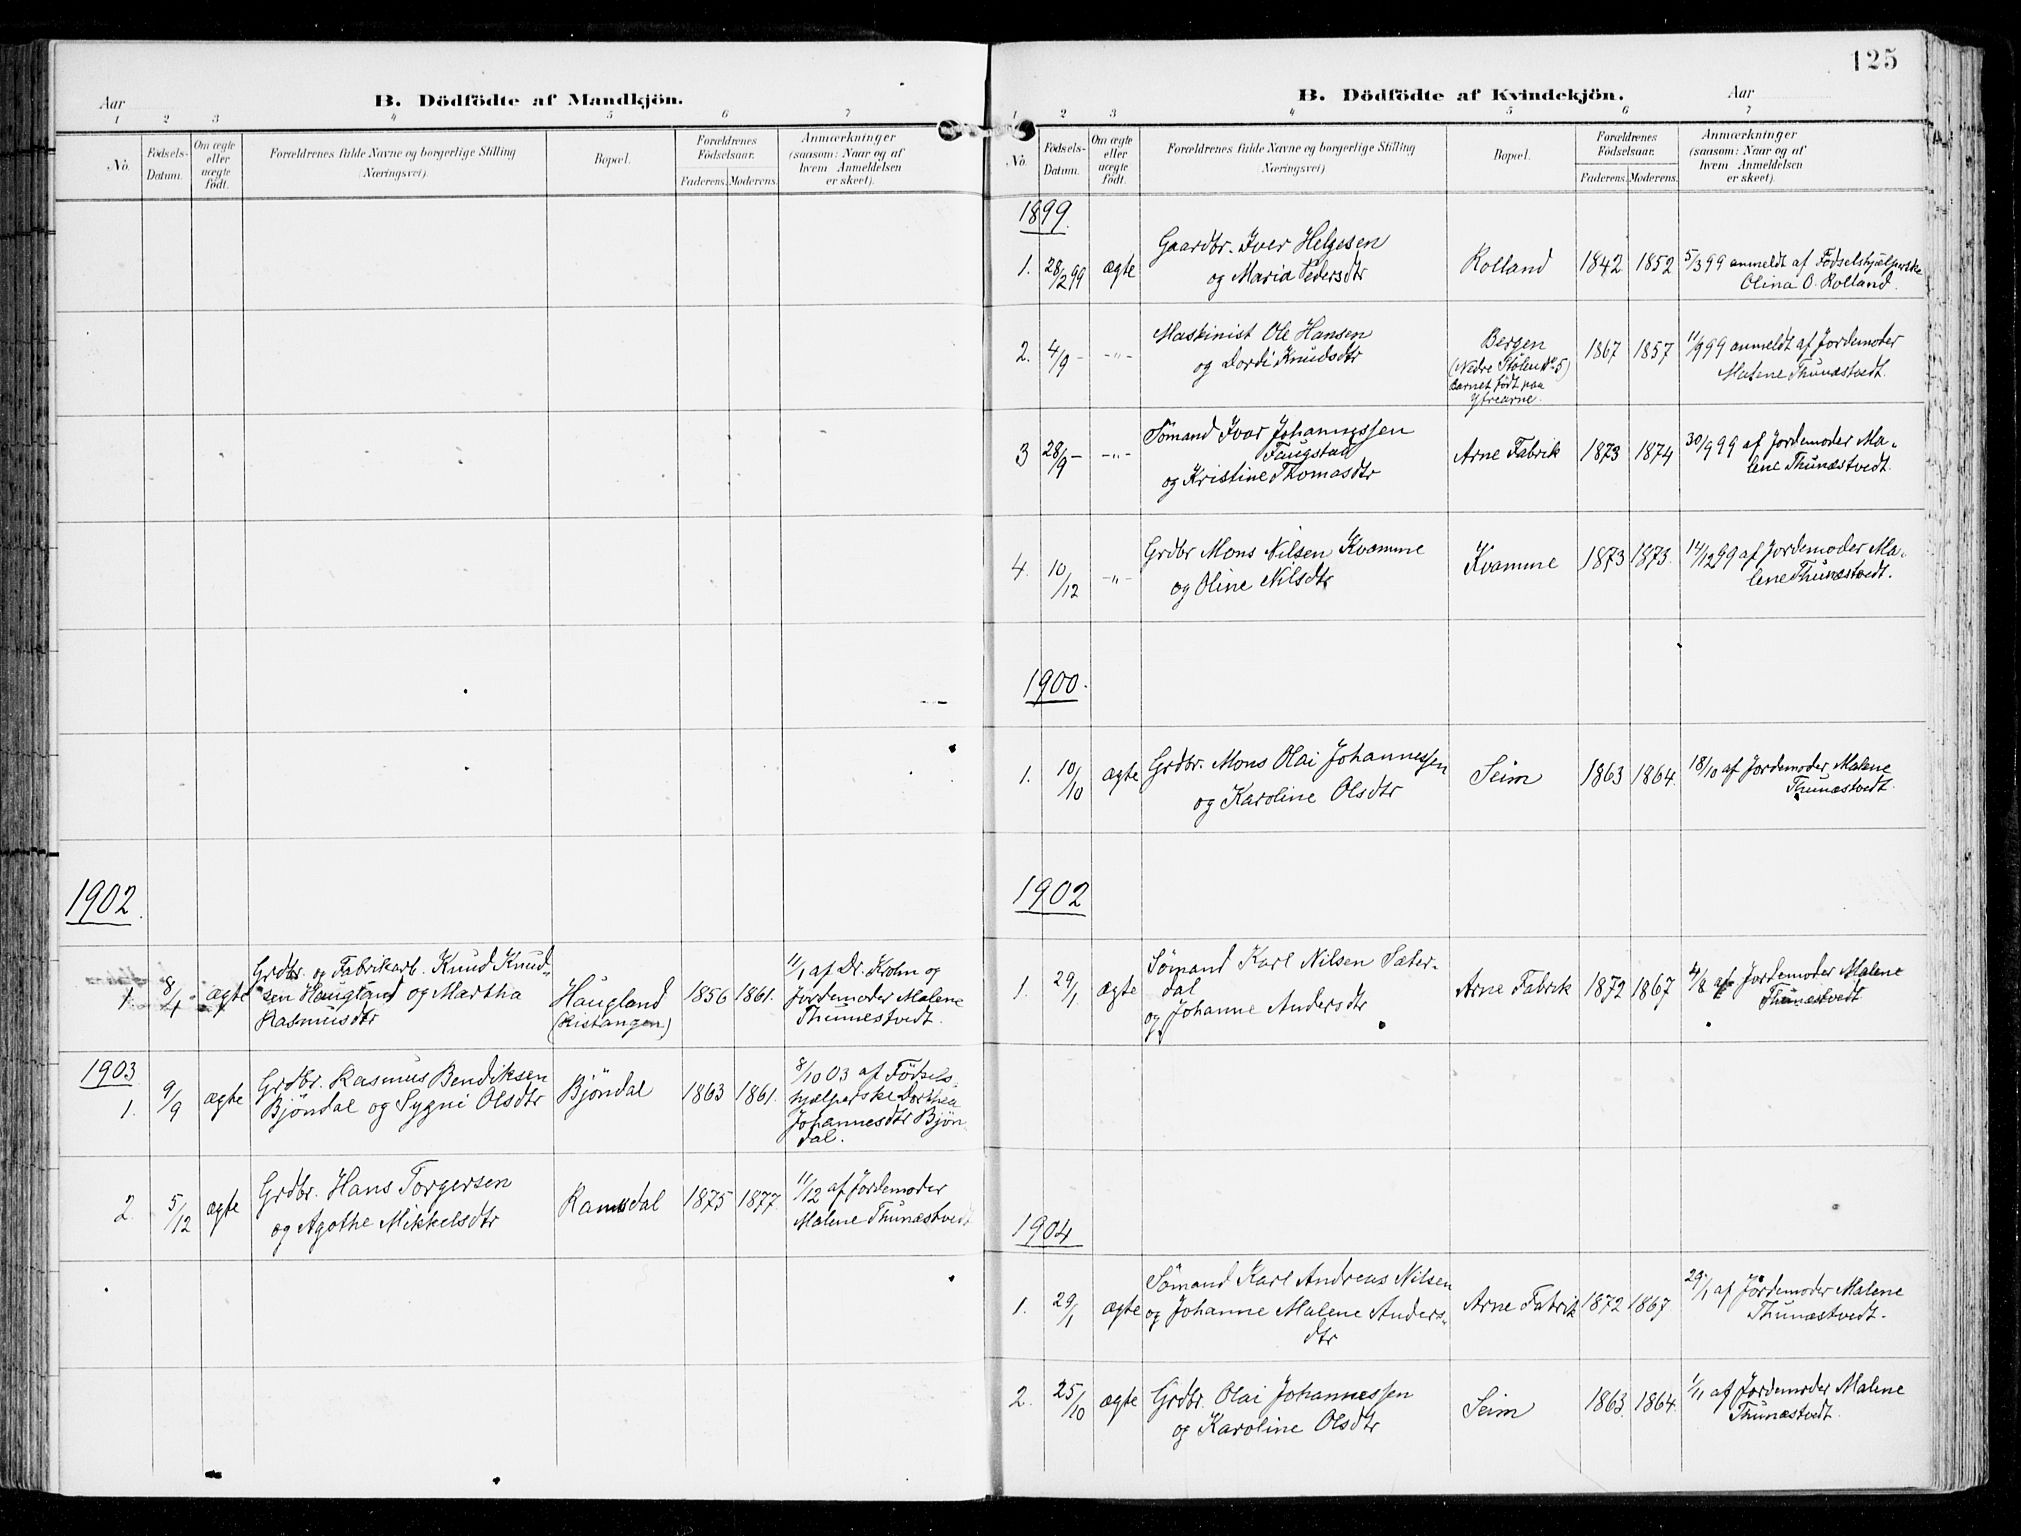 Aar
B. Dödfödte af Mandkjön.
1 2 3 4 5 6 7
No.
Födsels-Datum.
Om ægte eller uægte födt.
Forældrenes fulde Navne og borgerlige Stilling
(Næringsvei).
Bopæl.
Forældrenes Födselsaar.
Faderens. Moderens.
Anmærkninger
(saasom: Naar og af
hvem Anmeldelsen
er skeet).
1902.
1. 8/1 ægte
Grdbr. og Fabrikarb. Knud Knud-
sen Haugland og Martha
Rasmusdtr
Haugland
(Ristangen)
1856 1861.
11/1 af Dr. Krohn og
Jordemoder Malene
Thunestvedt.
1903
1. 9/9 ægte
Grdbr. Rasmus Bendiksen
Bjöndal og Sygni Olsdtr
Bjöndal
1863 1861.
8/10 03 af Födsels-
hjælperske Dorthea
Johannesdtr Bjön-
dal.
2. 5/12 ægte
Grdbr. Hans Torgersen
og Agothe Mikkelsdtr
Ramsdal
1875 1877.
11/12 af Jordemoder
Malene Thunæstvedt
125
B. Dödfödte af Kvindekjön.
Aar
1 2 3 4 5 6 7
No.
Födsels-Datum.
Om ægte eller uægte födt.
Forældrenes fulde Navne og borgerlige Stilling
(Næringsvei)
Bopæl.
Forældrenes Födselsaar.
Faderens. Moderens.
Anmærkninger
(saasom: Naar og af
hvem Anmeldelsen
er skeet).
1899.
1. 28/2 99 ægte
Gaardbr. Iver Helgesen
og Maria Pedersdtr
Rolland
1842 1852
5/3 99 anmeldt af Födselshjælperske
Olina O. Rolland.
2. 4/9 - -"-
Maskinist Ole Hansen
og Dordi Knudsdtr
Bergen
(Nedre Stölen No 5)
Barnet födt paa
Ytrearne.
1867 1857
11/9 99 anmeldt af Jordemoder
Malene Thunæstvedt.
3 28/9 - -"-
Sömand Ivar Johannessen
Faugstad
og Kristine Thomasdtr
Arne Fabrik
1873 1874
30/9 99 af Jordemoder Ma-
lene Thunæstvedt.
4. 10/12 -"-
Grdbr Mons Nilsen Kvamme
og Oline Nilsdtr
Kvamme
1873 1873.
14/12 99 af Jordemoder Ma-
lene Thunæstvedt.
1900.
1. 10/10 ægte
Grdbr. Mons Olai Johannessen
og Karoline Olsdtr
Seim
1863 1864.
18/10 af Jordemoder Malene
Thunæstvedt.
1902
1. 29/1 ægte
Sömand Karl Nilsen Sæter-
dal
og Johanne Andersdtr
Arne Fabrik
1872 1867
4/8 af Jordemoder Malene
Thunæstvedt
1904
1. 29/1 ægte
Sömand Karl Andreas Nilsen
og Johanne Malene Anders-
dtr
Arne Fabrik
1872 1867.
29/1 af Jordemoder Malene
Thunæstvedt.
2. 25/10 ægte
Grdbr. Olai Johannessen
og Karoline Olsdtr
Seim
1863. 1864.
1/11 af Jordemoder Malene
Thunæstvedt.